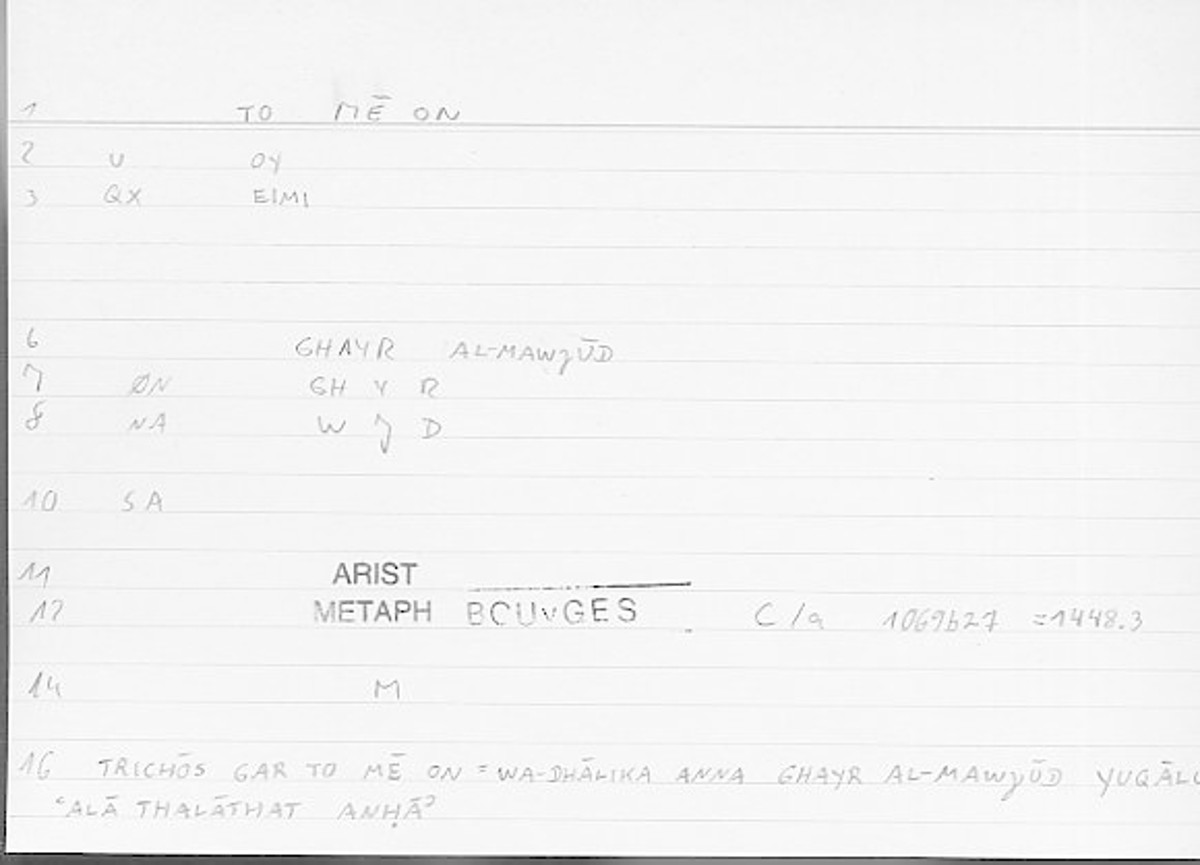 1 TO MĒ ON
2 U OY
3 QX EIMI
6 GHAYR AL-MAWJŪD
7 ØN GH Y R
8 NA W J D
10 SA
11 ARIST
12 METAPH BOUYGES C/a 1069b27 =1448.3
14 M
16 TRICHŌS GAR TO MĒ ON = WA-DHĀLIKA ANNA GHAYR AL-MAWJŪD
ʿALĀ THALĀTHAT ANḤĀʾ